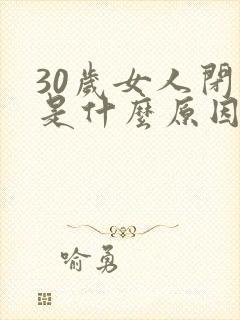 30歲女人閉
是什麼原因
喻勇